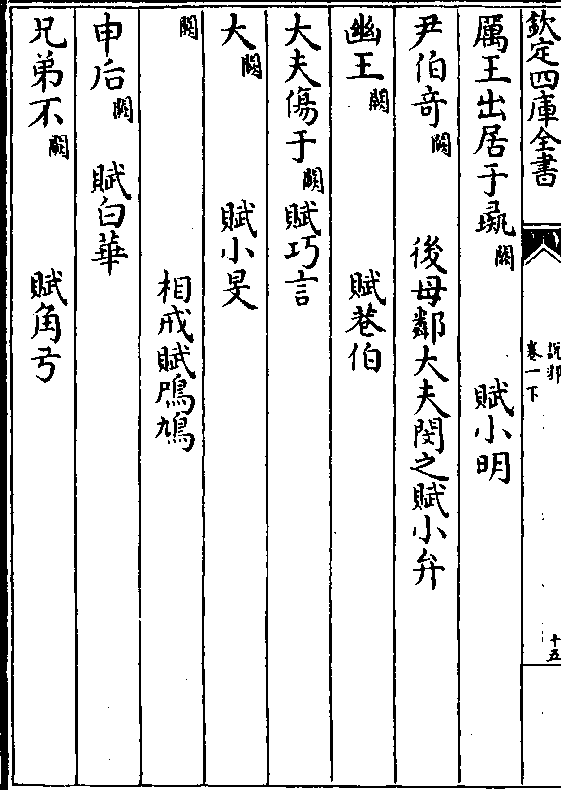 欽定四庫全書
說郛
卷一下
十五
厲王出居于彘闕賦小明
尹伯奇闕後母鄰大夫閔之賦小弁
幽王闕賦巷伯
大夫傷于闕賦巧言
大闕賦小旻
闕相戒賦鳲鳩
申后闕賦白華
兄弟不闕賦角弓